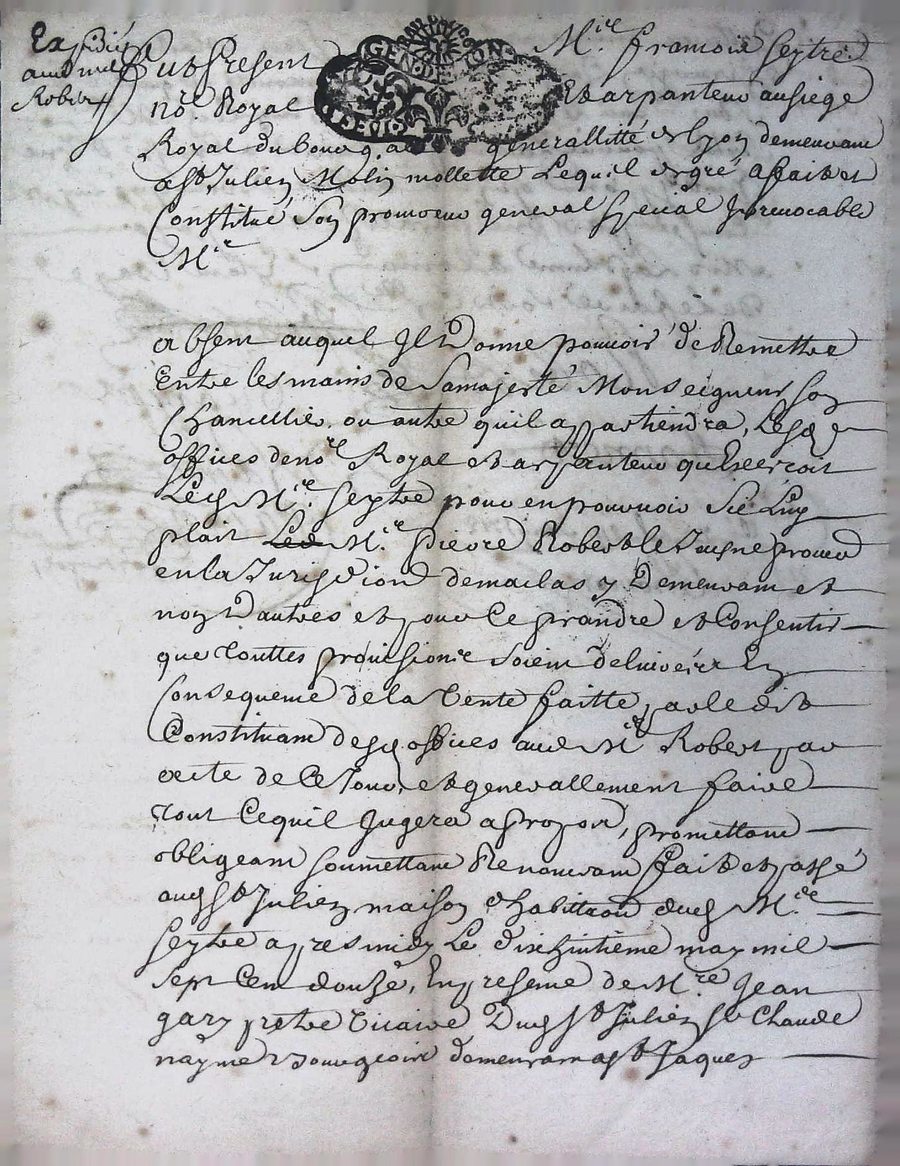 Expedié
aud me
Robert
Fut Present Mire francois seytre
nore Royal Et arpanteur au siege
GEN DE LYON
Royal du bourg generallitté de lyon demeurant
a st Julien Molin mollette Lequel de gré a fait et
Constitué son procureur general special Irrevocable
Mre
absent auquel Il donne pouvoir de Remettre
Entre les mains de Sa majesté Monseigneur son
Chancellier ou autre qu'il appartiendra, Lesd
offices de nore Royal et arpanteur qu'Exercoit
Led Mre Seytre pour en pourvoir Sil Luy
plait Led Mre pierre Robert le Jeusne procur
en la Jurisdiond de maclas y Demeurant et
non Dautres et pour Ce prandre et Consentir
que touttes provisions soient delivrées En
Consequence de la Vente faitte par ledit
Constituant desd offices aud Mre Robert par
acte de Ce Jour, et generallement faire
tout Cequil Jugera a propos, promettant
obligeant soumettant Renoncant fait et passé
aud st Julien maison d'habittaon dud Mre
Seytre apres midy Le dixhuitième may mil
sept Cent douze, En presence de Mre Jean
gary pretre vicaire Dud st Julien sr Claude
nayme bourgeois demeurant a st Jaques